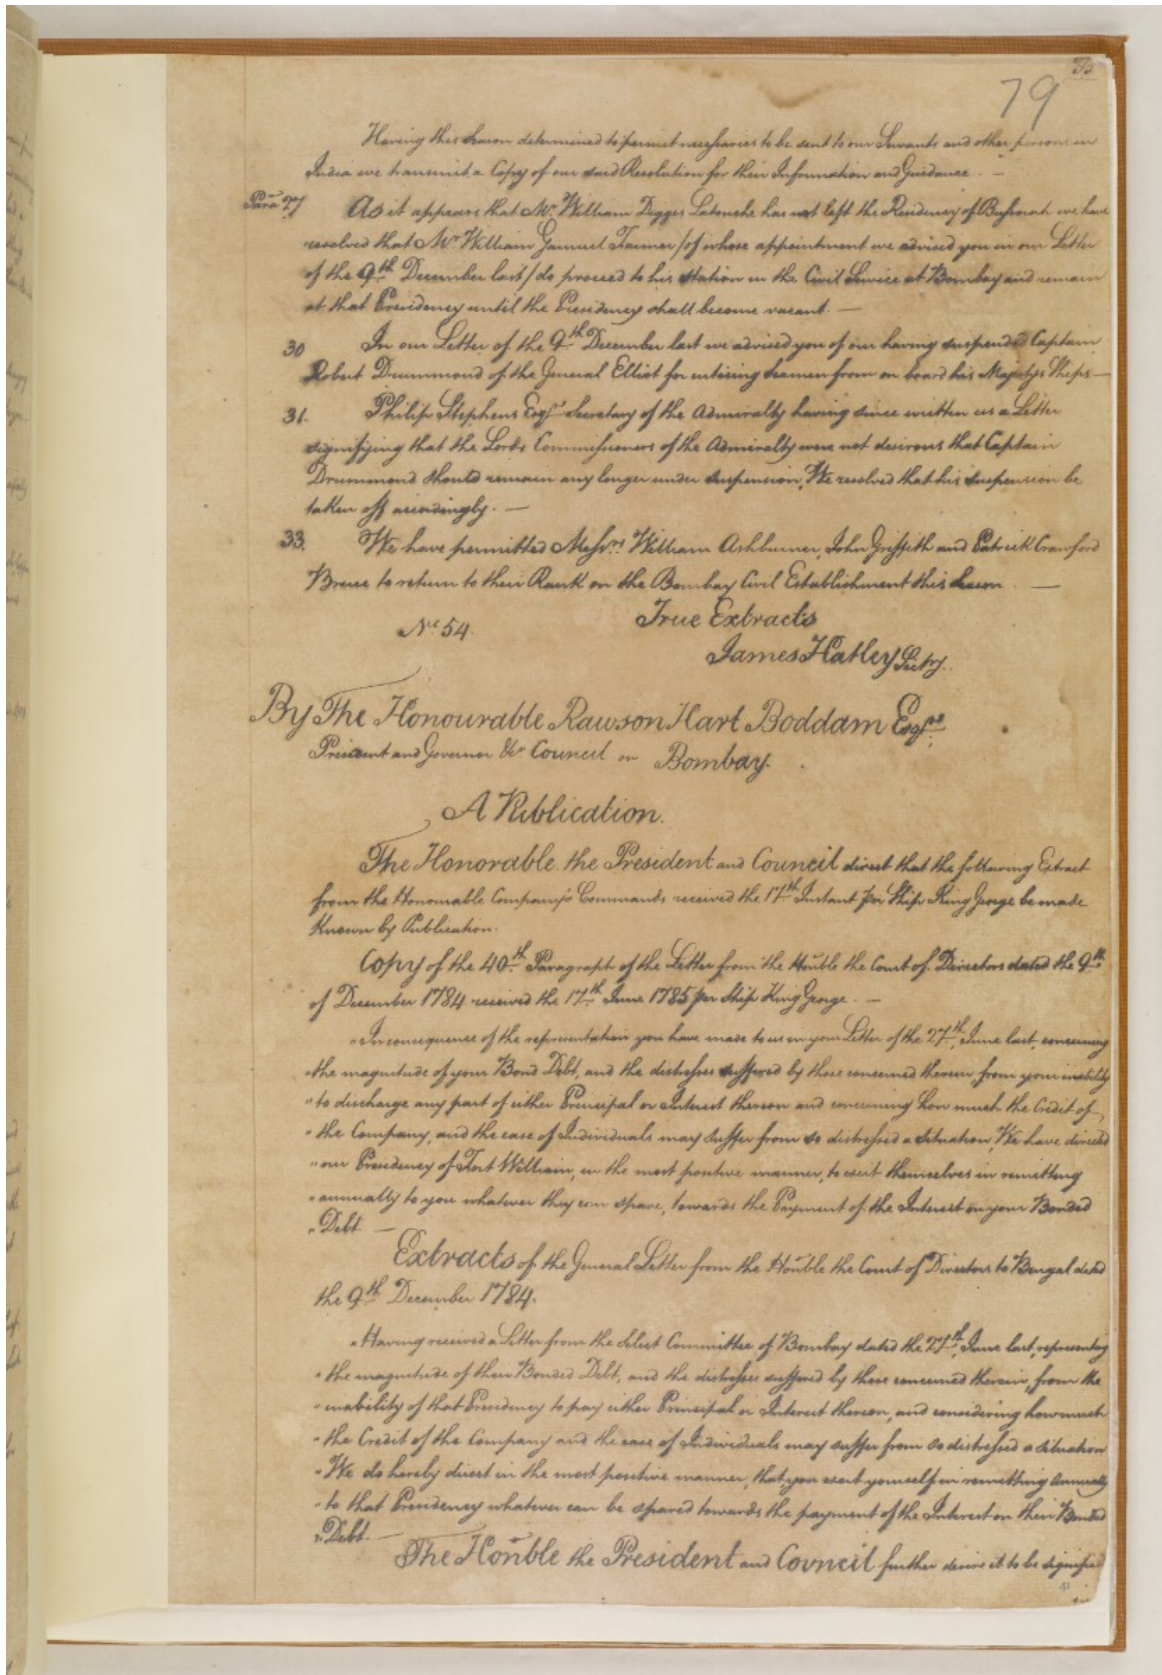 79
Having this Season determined to permit necessaries to be sent to our Servants and other persons in
India we transmit a Copy of our said Resolution for their Information and Guidance. —
Para 27 As it appears that Mr. William Digges Latouche has not left the Residency of Bussorah we have
resolved that Mr. William Samuel Farmer /of whose appointment we advised you in our Letter
of the 9th December last/ do proceed to his Station in the Civil Service at Bombay and remain
at that Presidency until the Residency shall become vacant. —
30 In our Letter of the 9th December last we advised you of our having suspended Captain
Robert Drummond of the General Elliot for enticing Seamen from on board his Majestys Ships —
31. Philip Stephens Esqr. Secretary of the Admiralty having since written us a Letter
signifying that the Lords Commissioners of the Admiralty were not desirous that Captain
Drummond should remain any longer under suspension, We resolved that his suspension be
taken off accordingly. —
33. We have permitted Messrs. William Ashburner, John Griffith and Patrick Crawford
Bruce to return to their Rank on the Bombay Civil Establishment this Season —
No. 54. True Extracts
James Hatley Secty.
By The Honourable Rawson Hart Boddam Esqre.
President and Governor &ca Council on Bombay.
A Publication.
The Honorable the President and Council direct that the following Extract
from the Honourable Company's Commands received the 17th Instant per Ship King George be made
Known by Publication.
Copy of the 40th Paragraph of the Letter from the Honble the Court of Directors dated the 9th
of December 1784 received the 17th June 1785 per Ship King George. —
"In consequence of the representation you have made to us in your Letter of the 27th June last, concerning
"the magnitude of your Bond Debt, and the distresses suffered by those concerned therein, from your inability
"to discharge any part of either Principal or Interest thereon and concerning how much the Credit of
"the Company, and the ease of Individuals may suffer from so distressed a situation, We have directed
"our Presidency of Fort William, in the most positive manner, to exert themselves in remitting
"annually to you whatever they can spare, towards the Payment of the Interest on your Bonded
"Debt. —
Extracts of the General Letter from the Honble the Court of Directors to Bengal dated
the 9th December 1784.
"Having received a Letter from the Select Committee of Bombay dated the 27th June last, representing
"the magnitude of their Bonded Debt, and the distresses suffered by those concerned therein, from the
"inability of that Presidency to pay either Principal or Interest thereon, and considering how much
"the Credit of the Company and the ease of Individuals may suffer from so distressed a situation
"We do hereby direct in the most positive manner, that you exert yourself in remitting Annually
"to that Presidency whatever can be spared towards the payment of the Interest on their Bonded
"Debt. —
The Honble the President and Council further desire it to be signified